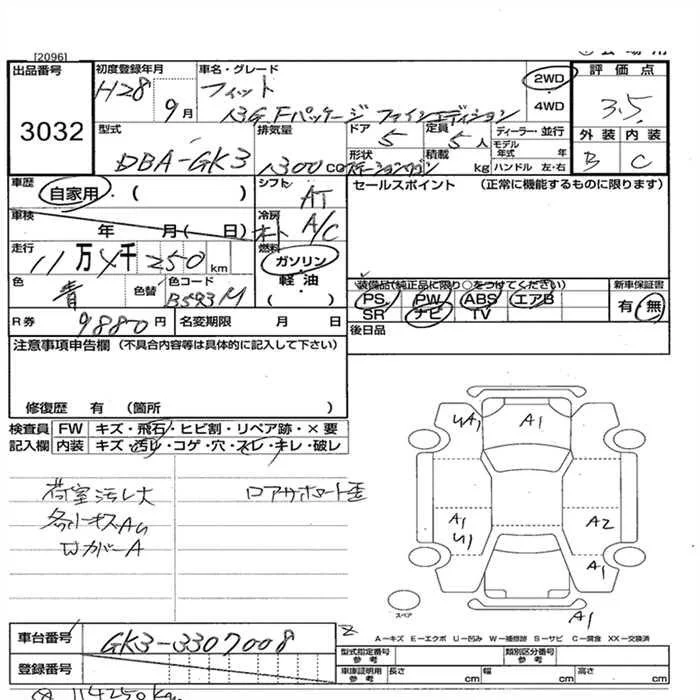 [2096]
出品番号
3032
初度登録年月
H28 9月
車名・グレード
フィット
13G Fパッケージ ファインエディション
2WD
4WD
評価点
3.5
外装 内装
B C
型式
DBA-GK3
排気量
1300 cc
ドア 5
定員 5人
形状
ステーションワゴン
積載 kg
ディーラー・並行
モデル年式 年
ハンドル 左・右
車歴
自家用・( )
シフト
AT
セールスポイント (正常に機能するものに限ります)
車検
年 月( 日)
冷房
オート A/C
走行
11万4千250km
燃料
ガソリン
軽油
( ・ )
色
青
色替
色コード
B593M
装備品(純正品に限り○をつけてください)
PS PW ABS エアB
SR ナビ TV
新車保証書
有・無
R券
9880円
名変期限 月 日
後日品
注意事項申告欄 (不具合内容等は具体的に記入して下さい)
修復歴 有 (箇所 )
検査員 FW キズ・飛石・ヒビ割・リペア跡・×要
記入欄 内装 キズ・汚レ・コゲ・穴・スレ・キレ・破レ
荷室汚レ大
各所キズAU
WカバーA
ロアサポート歪
UA1
A1
A1
U1
A2
A1
A1
スペア
A−キズ E−エクボ U−凹み W−補修跡 S−サビ C−腐食 XX−交換済
車台番号
GK3-3307008
登録番号
型式指定番号
参考
類別区分番号
参考
車庫証明用
参考
長さ cm
幅 cm
高さ cm
114250km